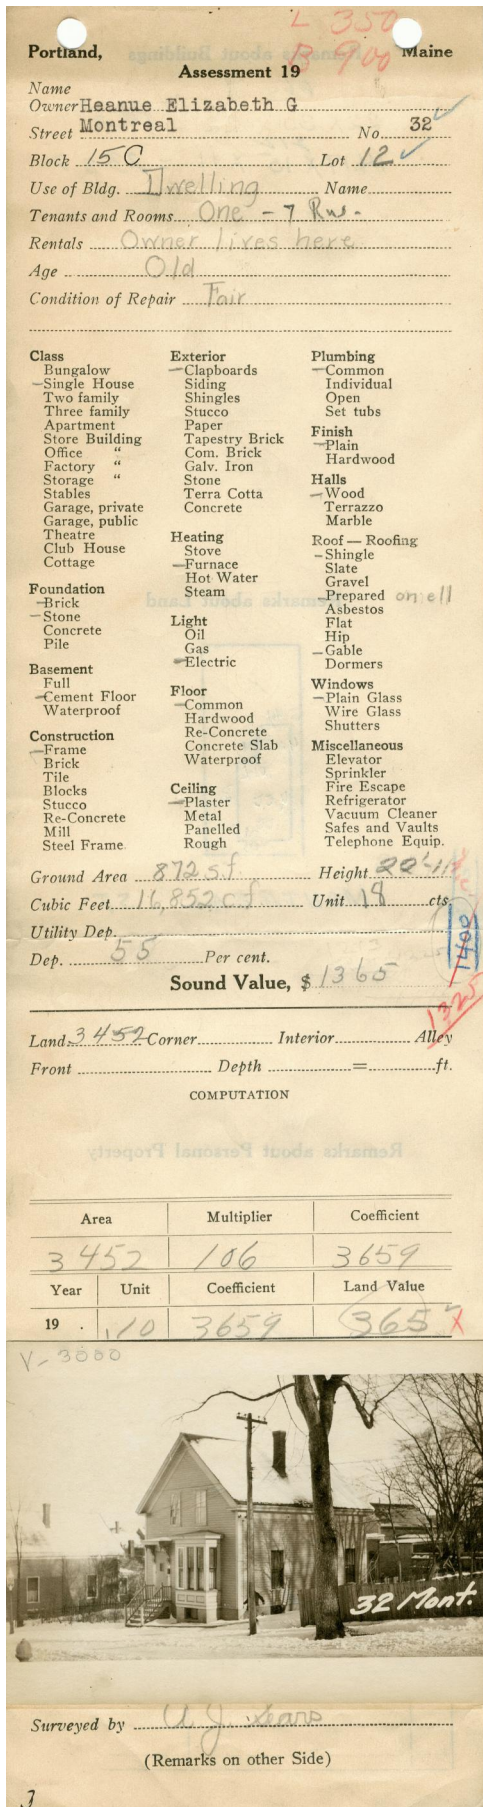 L 350
B 900
Portland, Maine
Assessment 19
Name
Owner Heanue Elizabeth G
Street Montreal No. 32
Block 15C Lot 12
Use of Bldg. Dwelling Name
Tenants and Rooms One - 7 Rms.
Rentals Owner lives here
Age Old
Condition of Repair Fair
Class
Bungalow
Single House
Two family
Three family
Apartment
Store Building
Office "
Factory "
Storage "
Stables
Garage, private
Garage, public
Theatre
Club House
Cottage
Foundation
Brick
Stone
Concrete
Pile
Basement
Full
Cement Floor
Waterproof
Construction
Frame
Brick
Tile
Blocks
Stucco
Re-Concrete
Mill
Steel Frame
Exterior
Clapboards
Siding
Shingles
Stucco
Paper
Tapestry Brick
Com. Brick
Galv. Iron
Stone
Terra Cotta
Concrete
Heating
Stove
Furnace
Hot Water
Steam
Light
Oil
Gas
Electric
Floor
Common
Hardwood
Re-Concrete
Concrete Slab
Waterproof
Ceiling
Plaster
Metal
Panelled
Rough
Plumbing
Common
Individual
Open
Set tubs
Finish
Plain
Hardwood
Halls
Wood
Terrazzo
Marble
Roof — Roofing
Shingle
Slate
Gravel
Prepared on ell
Asbestos
Flat
Hip
Gable
Dormers
Windows
Plain Glass
Wire Glass
Shutters
Miscellaneous
Elevator
Sprinkler
Fire Escape
Refrigerator
Vacuum Cleaner
Safes and Vaults
Telephone Equip.
Ground Area 872 s.f. Height
Cubic Feet 16,852 cf Unit 18 cts.
Utility Dep.
Dep. 55 Per cent.
1400
Sound Value, $ 1365
1325
Land 3452 Corner Interior Alley
Front Depth = ft.
COMPUTATION
Area Multiplier Coefficient
3452 106 3659
Year Unit Coefficient Land Value
19 . .10 3659 365 X
V-3000
32 Mont.
Surveyed by A. J. Sears
(Remarks on other Side)
3